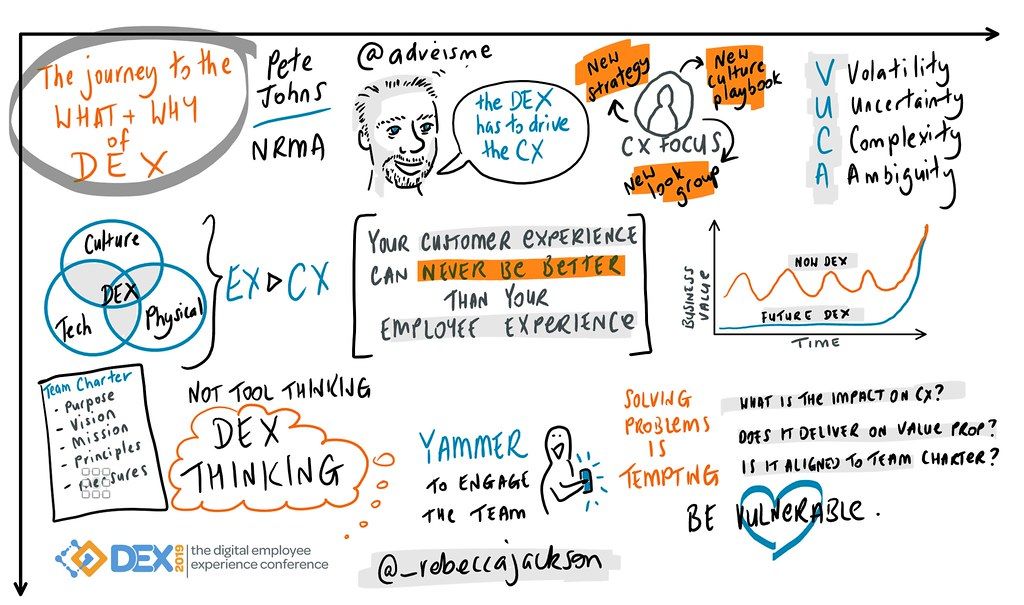 The journey to the
WHAT + WHY
of
DEX
Pete
Johns
NRMA
@adveisme
the DEX
has to drive
the CX
New
strategy
New
culture
playbook
CX FOCUS
New
look
group
V Volatility
U Uncertainty
C Complexity
A Ambiguity
Culture
DEX
Tech
Physical
EX ▷ CX
YOUR CUSTOMER EXPERIENCE
CAN NEVER BE BETTER
THAN YOUR
EMPLOYEE EXPERIENCE
BUSINESS
VALUE
NOW DEX
FUTURE DEX
TIME
Team Charter
- Purpose
- Vision
- Mission
- Principles
- Measures
NOT TOOL THINKING
DEX
THINKING
YAMMER
TO ENGAGE
THE TEAM
SOLVING
PROBLEMS
IS
TEMPTING
WHAT IS THE IMPACT ON CX?
DOES IT DELIVER ON VALUE PROP?
IS IT ALIGNED TO TEAM CHARTER?
BE VULNERABLE.
DEX 2019
the digital employee
experience conference
@_rebeccajackson